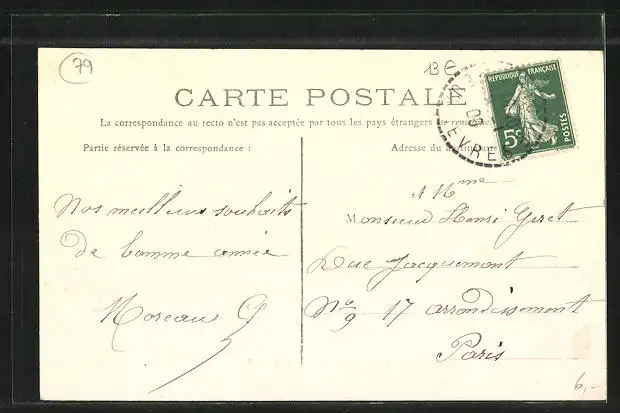 79
13 €
CARTE POSTALE
La correspondance au recto n'est pas acceptée par tous les pays étrangers (Se
Partie réservée à la correspondance :
Adresse du destinataire
REPUBLIQUE FRANÇAISE
5c
POSTES
09
EVRES
Nos meilleurs souhaits
de bonne année
Moreau G
& Mme
Monsieur Henri Giret
Rue Jacquemont
No 9 17 arrondissement
Paris
6,-